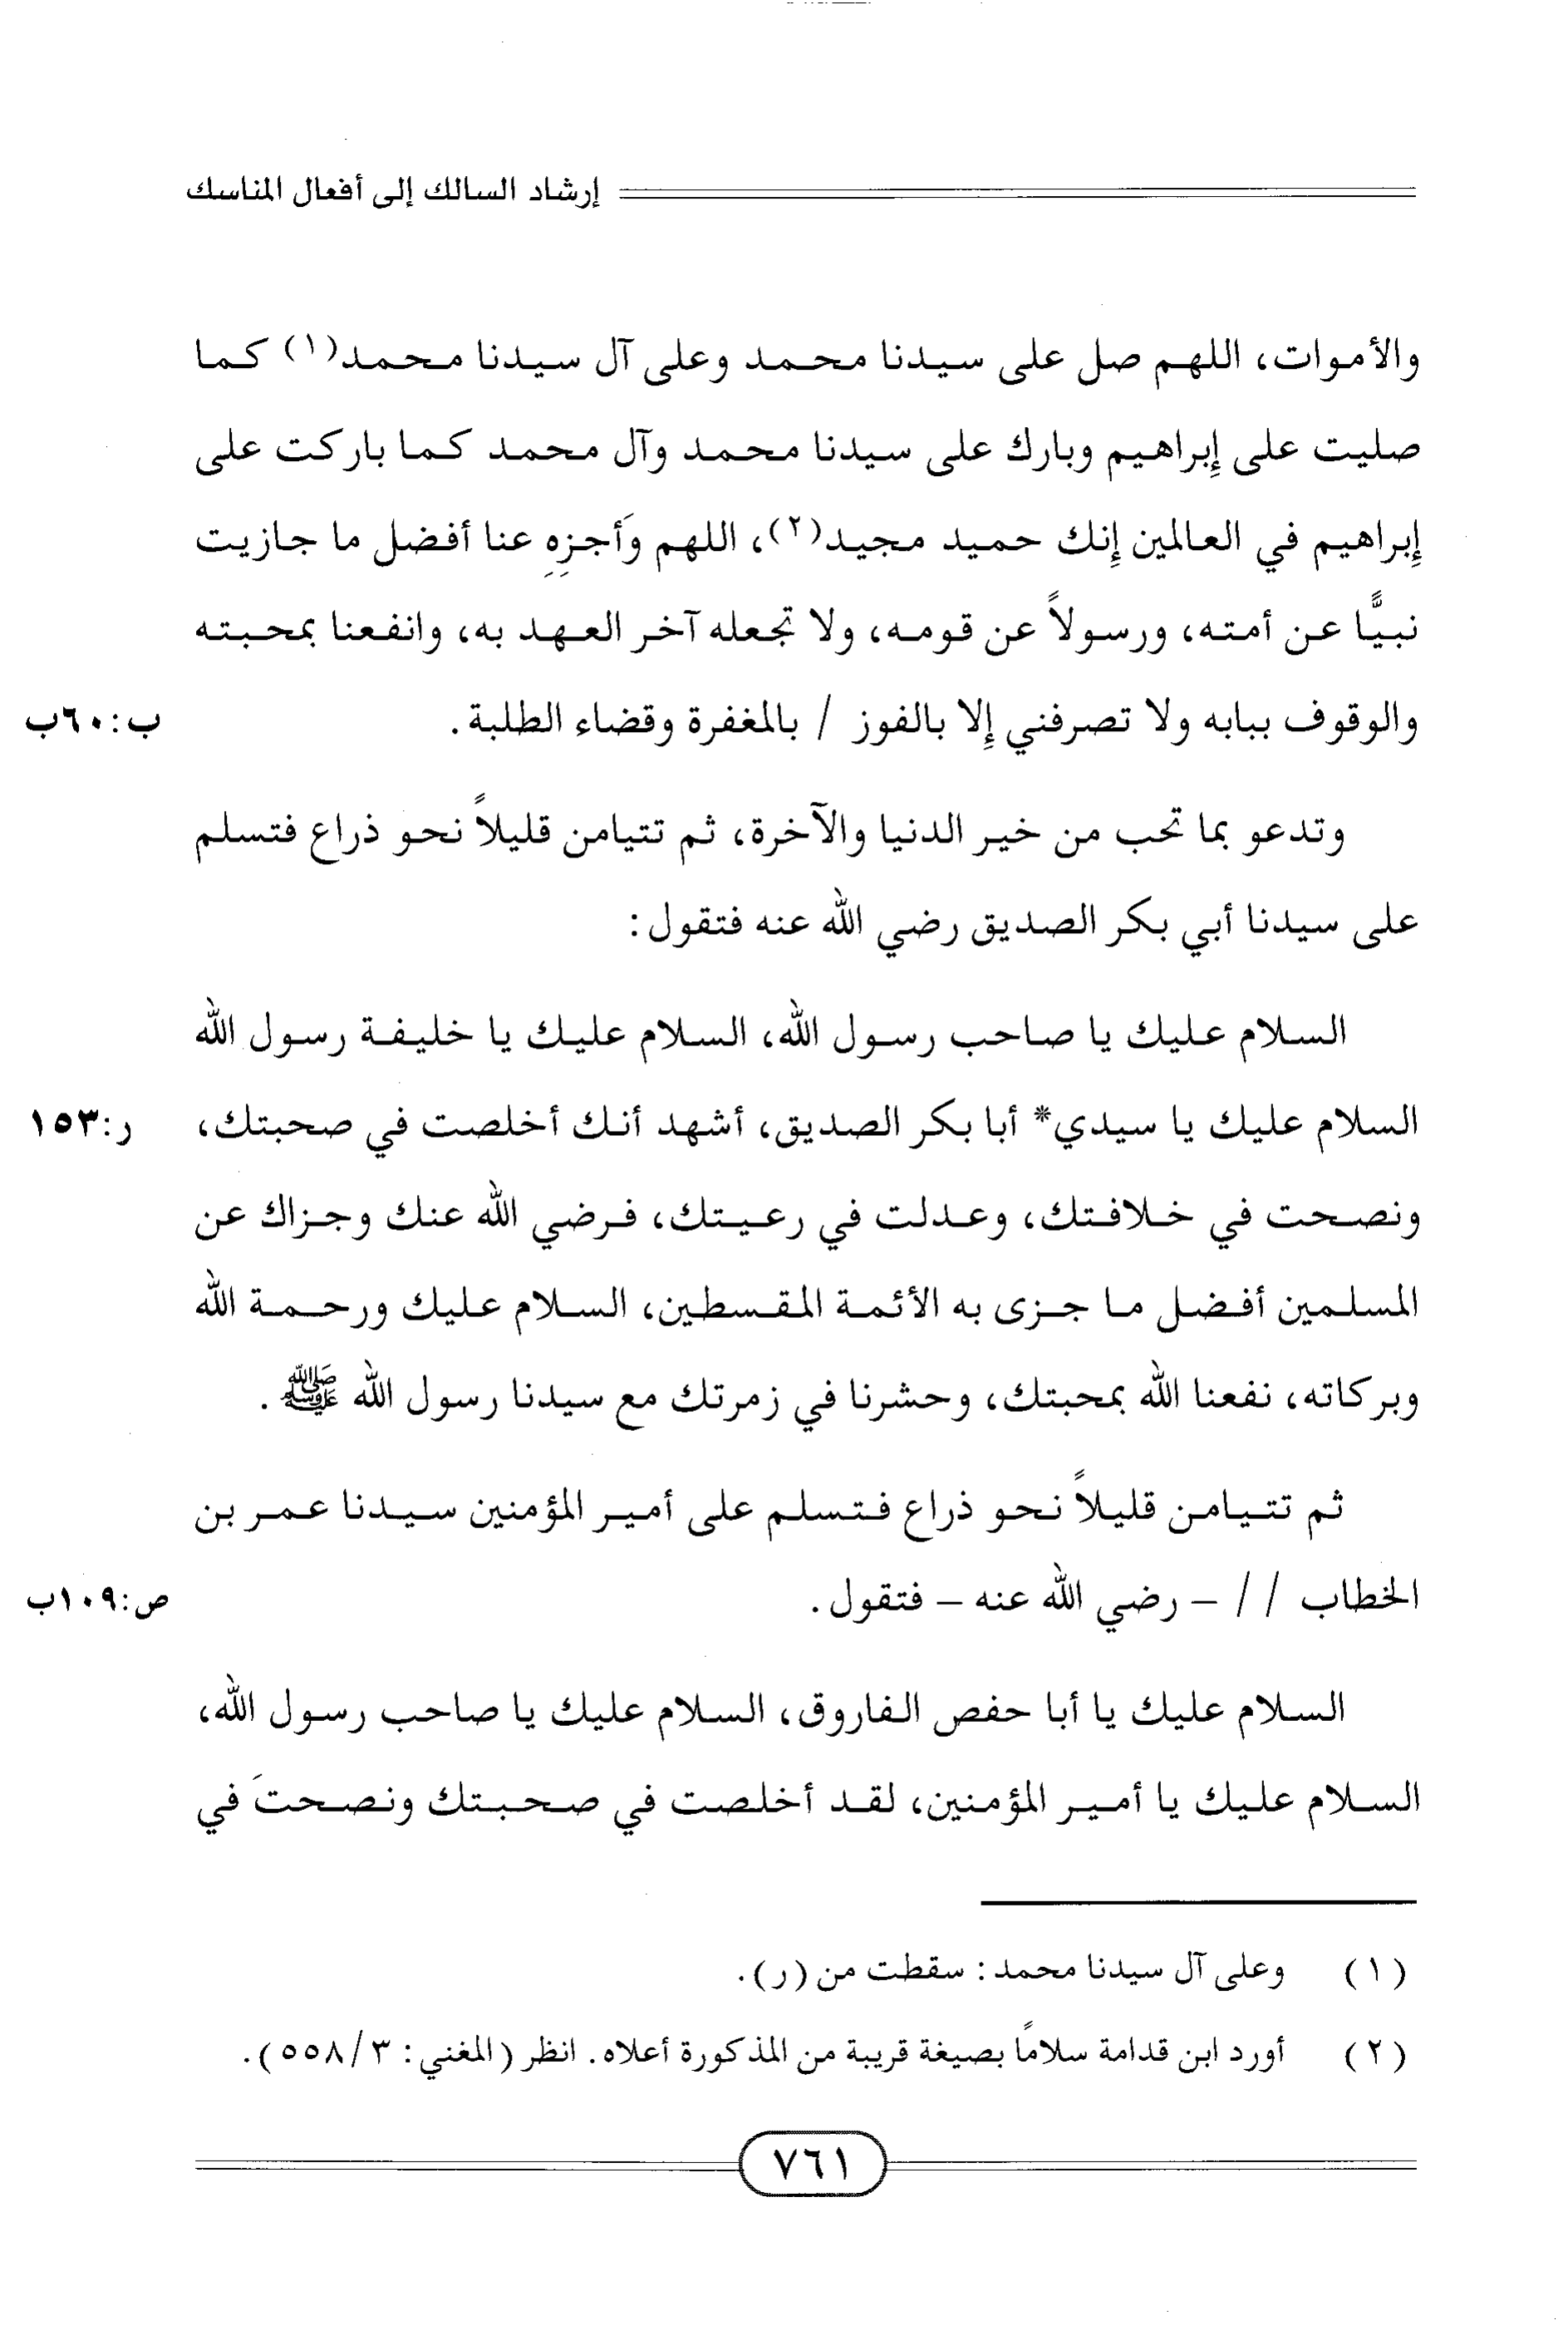 إرشاد السالك إلى أفعال المناسك
والأموات، اللهم صل على سيدنا محمد وعلى آل سيدنا محمد(١) كما
صليت على إبراهيم وبارك على سيدنا محمد وآل محمد كما باركت على
إبراهيم في العالمين إنك حميد مجيد(٢)، اللهم وَأجزِهِ عنا أفضل ما جازيت
نبيًّا عن أمته، ورسولاً عن قومه، ولا تجعله آخر العهد به، وانفعنا بمحبته
والوقوف ببابه ولا تصرفني إلا بالفوز / بالمغفرة وقضاء الطلبة. ب:٦٠ب
وتدعو بما تحب من خير الدنيا والآخرة، ثم تتيامن قليلاً نحو ذراع فتسلم
على سيدنا أبي بكر الصديق رضي الله عنه فتقول:
السلام عليك يا صاحب رسول الله، السلام عليك يا خليفة رسول الله
السلام عليك يا سيدي* أبا بكر الصديق، أشهد أنك أخلصت في صحبتك، ر:١٥٣
ونصحت في خلافتك، وعدلت في رعيتك، فرضي الله عنك وجزاك عن
المسلمين أفضل ما جزى به الأئمة المقسطين، السلام عليك ورحمة الله
وبركاته، نفعنا الله بمحبتك، وحشرنا في زمرتك مع سيدنا رسول الله ﷺ.
ثم تتيامن قليلاً نحو ذراع فتسلم على أمير المؤمنين سيدنا عمر بن
الخطاب // – رضي الله عنه – فتقول. ص:١٠٩ب
السلام عليك يا أبا حفص الفاروق، السلام عليك يا صاحب رسول الله،
السلام عليك يا أمير المؤمنين، لقد أخلصت في صحبتك ونصحتَ في
(١) وعلى آل سيدنا محمد: سقطت من (ر).
(٢) أورد ابن قدامة سلامًا بصيغة قريبة من المذكورة أعلاه. انظر (المغني: ٣/٥٥٨).
٧٦١